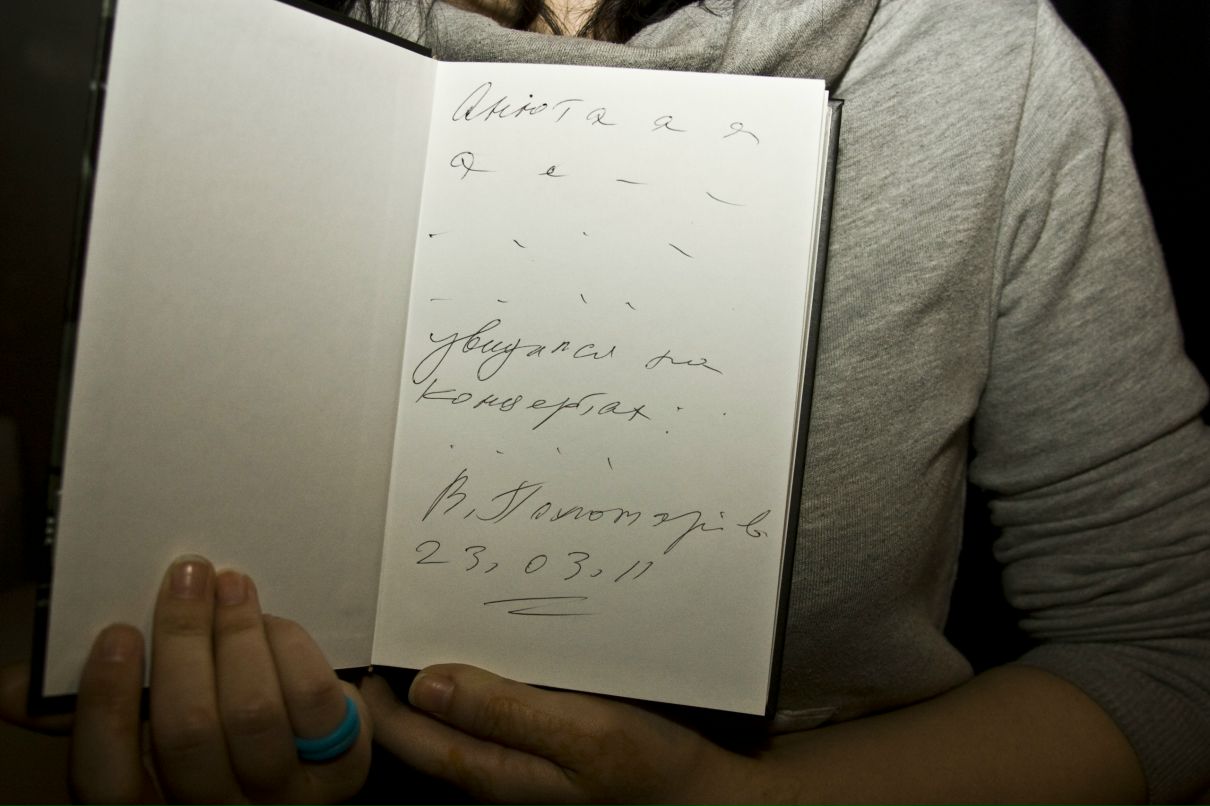 Анюта а я
а е
увидался на
концертах:
В. Пономарёв
23,03,11